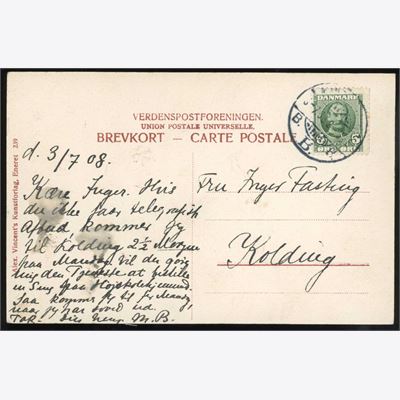 VERDENSPOSTFORENINGEN.
UNION POSTALE UNIVERSELLE.
BREVKORT — CARTE POSTALE
DANMARK
5 5
ØRE ØRE
B. B.
Alex. Vincent's Kunstforlag, Eneret 239
d. 3/7 08.
Kære Inger. Hvis
du ikke faar telegrafisk
Afbud kommer jeg
til Kolding 2½ Morgen
paa Mandag. Vil du gøre
mig den Tjeneste at bestille
en Seng paa
saa kommer jeg til
naar jeg har sovet ud.
Tak. din M.B.
Fru Inger Fasting
Kolding.